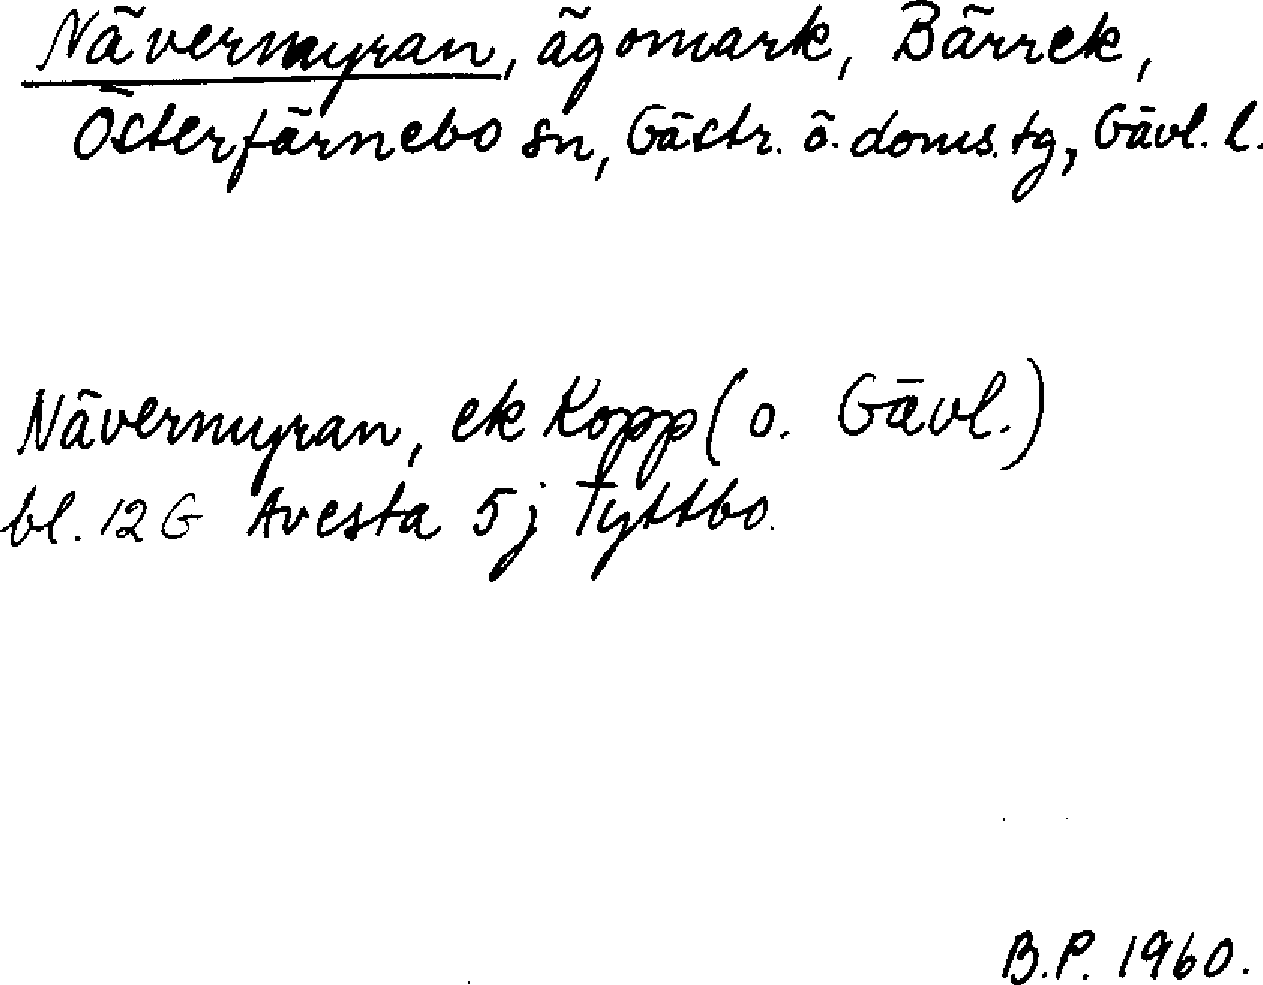 Nävermyran, ägomark, Bärrek,
Österfärnebo sn, Gästr. ö. doms.tg, Gävl. l.
Nävermyran, ek Kopp (o. Gävl.)
bl. 12 G Avesta 5 j Tyttbo.
B.P. 1960.